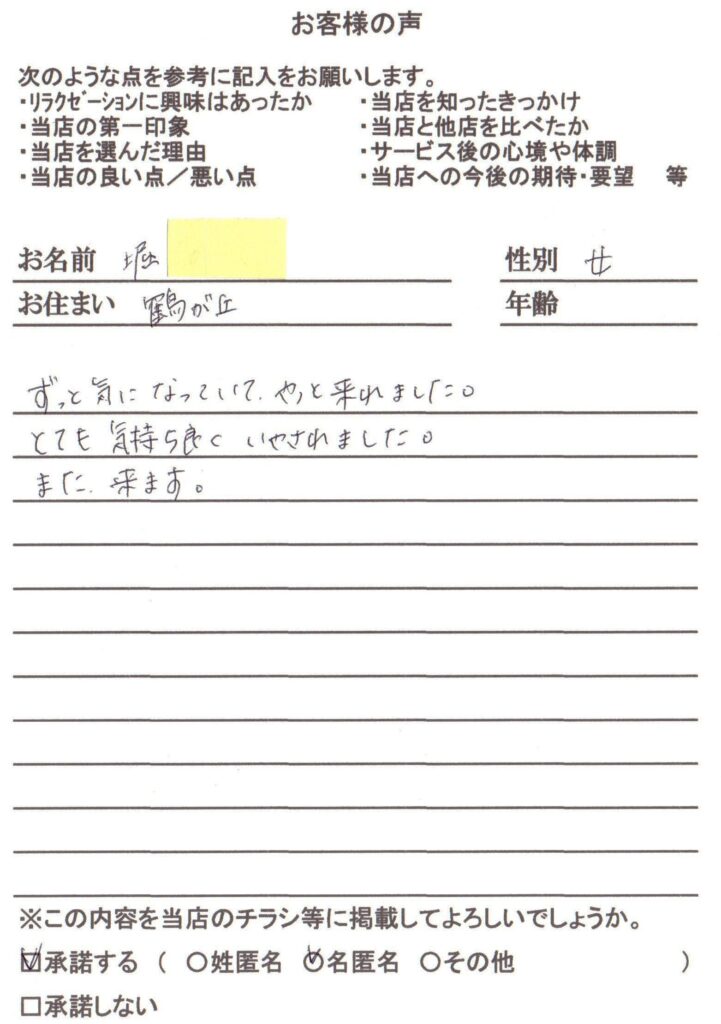 お客様の声
次のような点を参考に記入をお願いします。
・ﾘﾗｸｾﾞｰｼｮﾝに興味はあったか ・当店を知ったきっかけ
・当店の第一印象 ・当店と他店を比べたか
・当店を選んだ理由 ・サービス後の心境や体調
・当店の良い点／悪い点 ・当店への今後の期待・要望 等
お名前 堀 性別 女
お住まい 鶴が丘 年齢
ずっと気になっていて、やっと来れました。
とても気持ち良くいやされました。
また、来ます。
※この内容を当店のチラシ等に掲載してよろしいでしょうか。
☑承諾する （ ○姓匿名 ○名匿名 ○その他 ）
□承諾しない